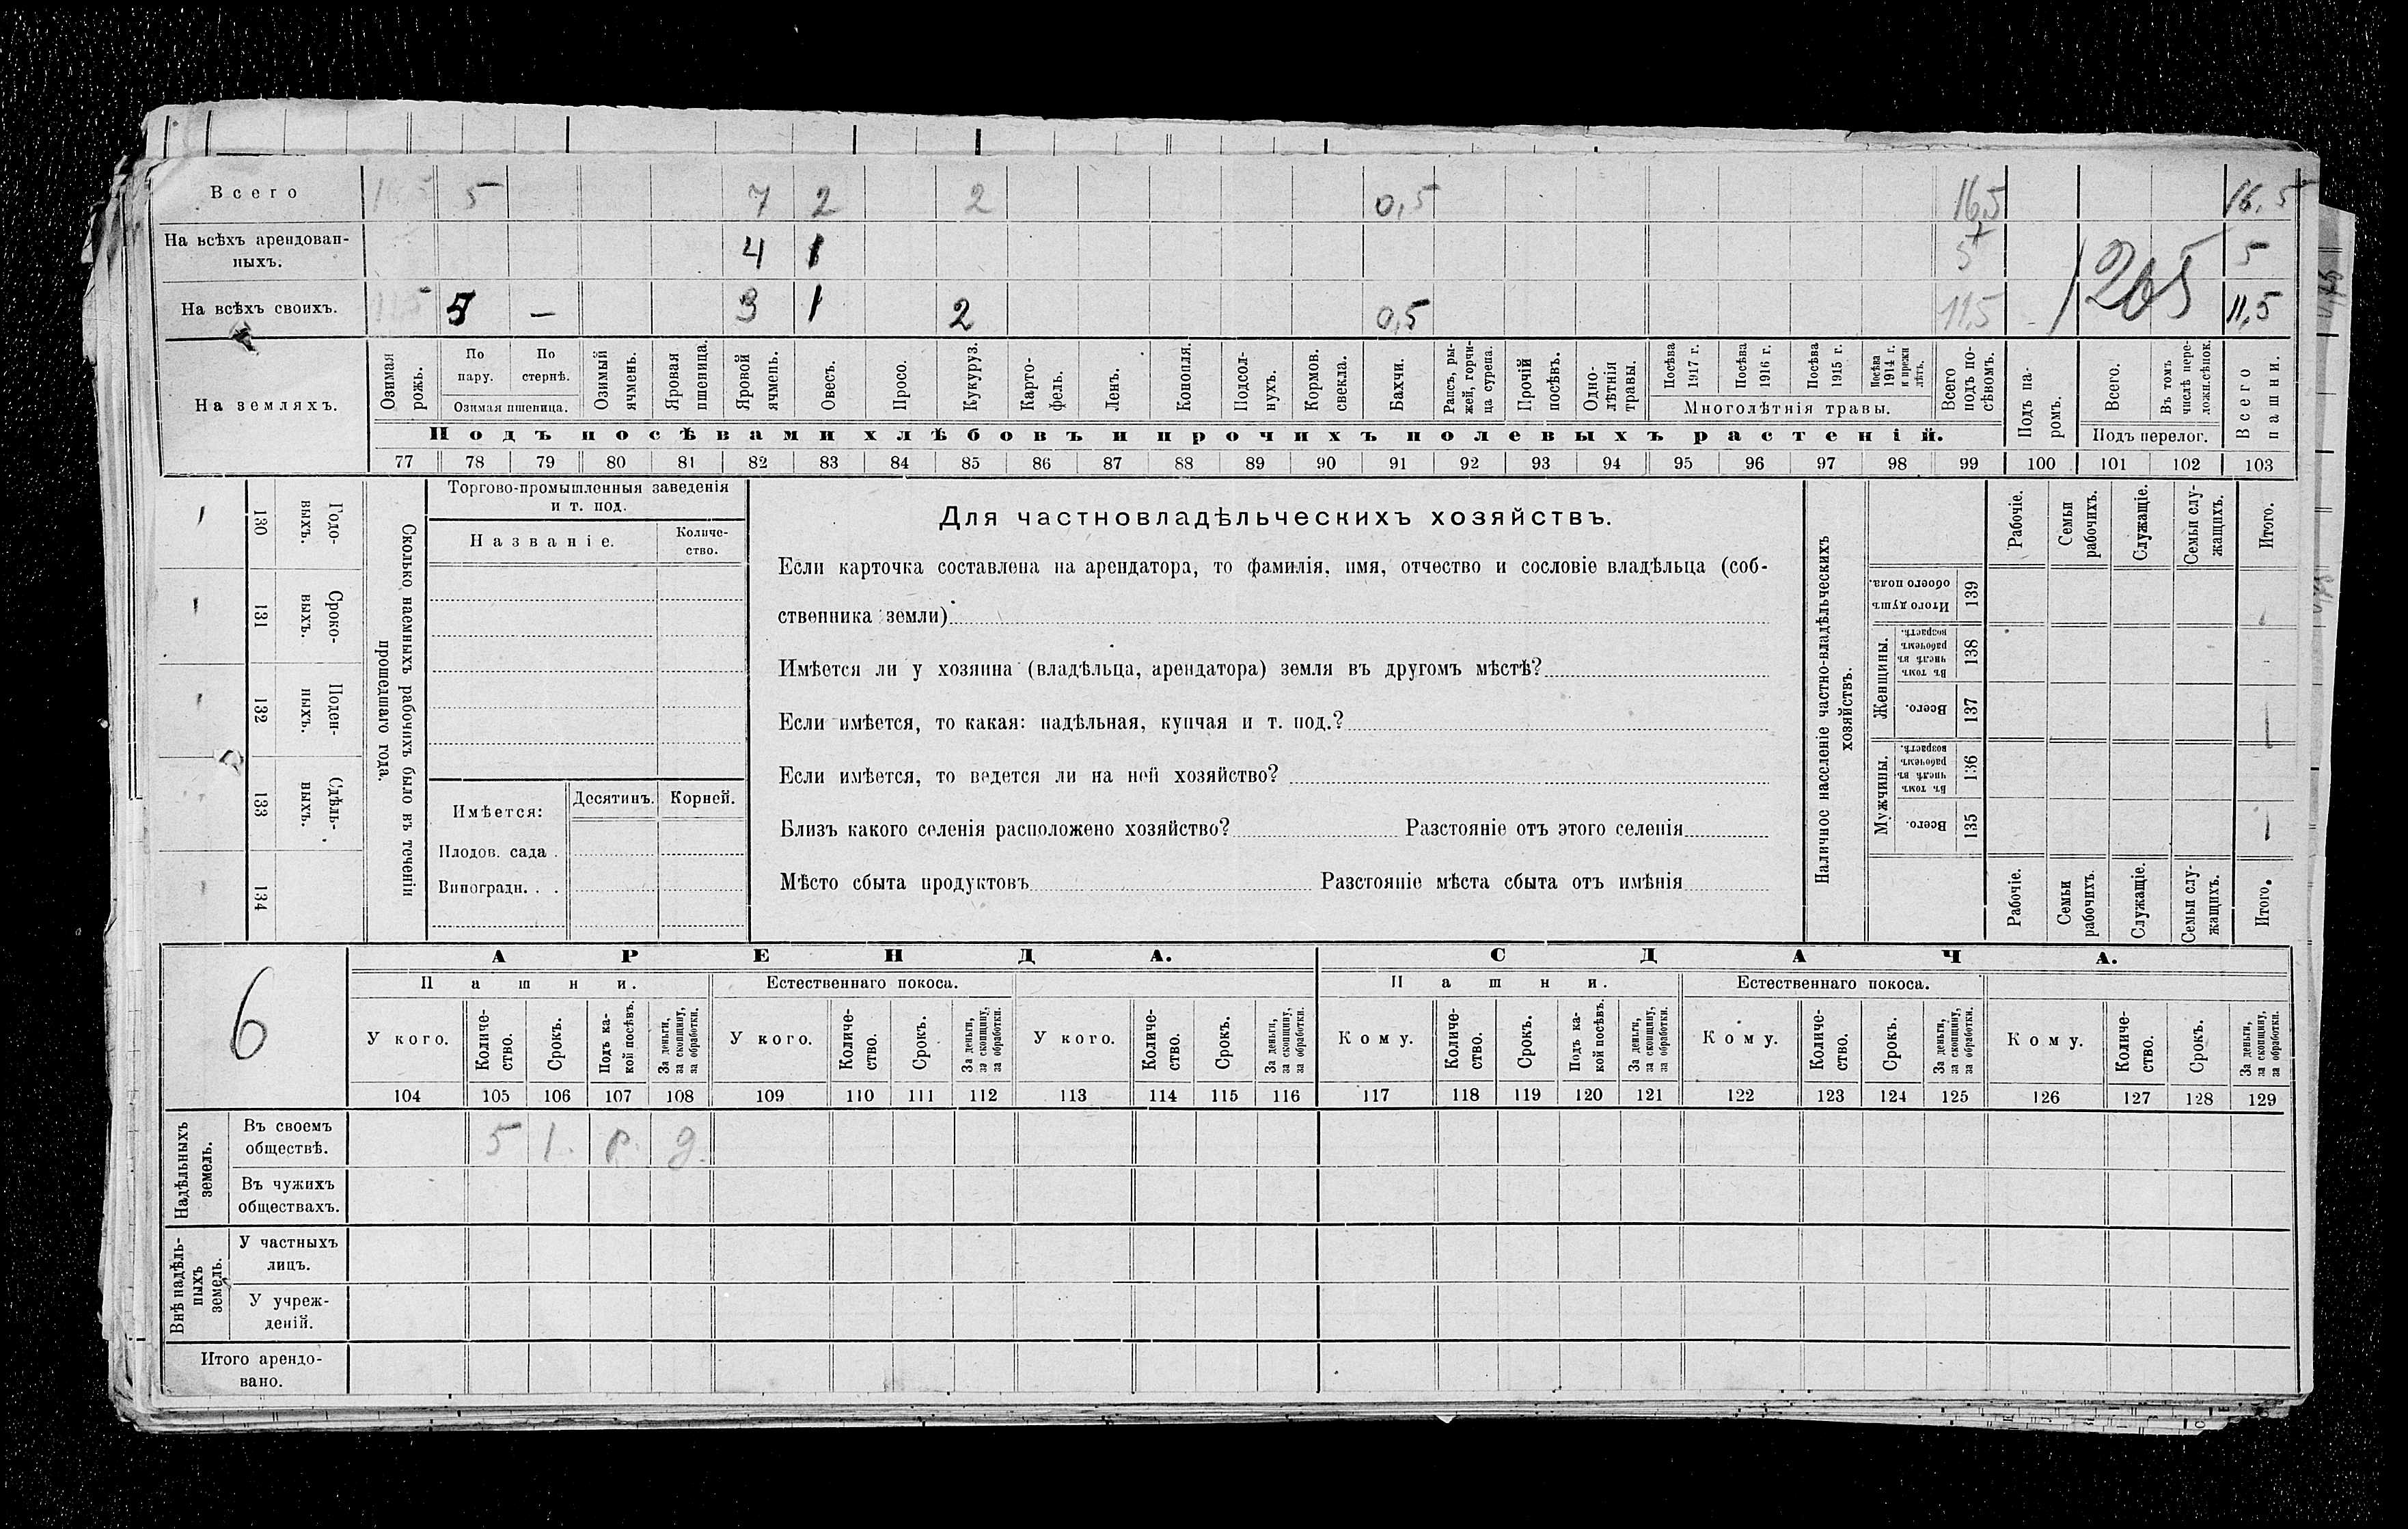 Всего 5 7 2 2 0,5 16,5 16,5
На всѣхъ арендован-
ныхъ. 4 1 5 5
На всѣхъ своихъ. 11,5 5 — 3 1 2 0,5 11,5 1205 11,5
На земляхъ.
Озимая рожь.
По пару.
По стернѣ.
Озимая пшеница.
Озимый ячмень.
Яровая пшеница.
Яровой ячмень.
Овесъ.
Просо.
Кукуруз.
Карто-
фель.
Ленъ.
Конопля.
Подсол-
нухъ.
Кормов. свекла.
Бахчи.
Рапсъ, ры-
жей, горчи-
ца сурепа.
Прочій посѣвъ.
Одно-
лѣтнія травы.
Посѣва 1917 г.
Посѣва 1916 г.
Посѣва 1915 г.
Посѣва 1914 г. и прежн лѣтъ.
Многолѣтнія травы.
Всего подъ по-
сѣвомъ.
Подъ па-
ромъ.
Всего.
Въ томъ числѣ пере-
ложн.сѣнок.
Подъ перелог.
Всего пашни.
Подъ посѣвами хлѣбовъ и прочихъ полевыхъ растеній.
77 78 79 80 81 82 83 84 85 86 87 88 89 90 91 92 93 94 95 96 97 98 99 100 101 102 103
130 Годо-
выхъ.
131 Сроко-
выхъ.
132 Поден-
ныхъ.
133 Сдѣль-
ныхъ.
134
Сколько наемныхъ рабочихъ было въ теченіи
прошедшаго года.
Торгово-промышленныя заведенія
и т. под.
Названіе.
Количе-
ство.
Имѣется:
Десятинъ. Корней.
Плодов. сада .
Виноградн. . .
Для частновладѣльческихъ хозяйствъ.
Если карточка составлена на арендатора, то фамилія, имя, отчество и сословіе владѣльца (соб-
ственника земли)
Имѣется ли у хозяина (владѣльца, арендатора) земля въ другомъ мѣстѣ?
Если имѣется, то какая: надѣльная, купчая и т. под.?
Если имѣется, то ведется ли на ней хозяйство?
Близъ какого селенія расположено хозяйство? Разстояніе отъ этого селенія
Мѣсто сбыта продуктовъ Разстояніе мѣста сбыта отъ имѣнія
Наличное населеніе частно-владѣльческихъ
хозяйствъ.
Рабочіе.
Семьи рабочихъ.
Служащіе.
Семьи слу-
жащихъ.
Итого.
Итого душъ обоего пола. 139
Женщины.
Въ томъ числѣ въ рабочемъ возрастѣ. 138
Всего. 137
Мужчины.
Въ томъ числѣ въ рабочемъ возрастѣ. 136
Всего. 135
Рабочіе.
Семьи рабочихъ.
Служащіе.
Семьи слу-
жащихъ.
Итого.
6
АРЕНДА. СДАЧА.
Пашни. Естественнаго покоса. Пашни. Естественнаго покоса.
У кого.
Количе-
ство.
Срокъ.
Подъ ка-
кой посѣвъ.
За деньги,
за скопщину,
за обработки.
У кого.
Количе-
ство.
Срокъ.
За деньги,
за скопщину,
за обработки.
У кого.
Количе-
ство.
Срокъ.
За деньги,
за скопщину,
за обработки.
Кому.
Количе-
ство.
Срокъ.
Подъ ка-
кой посѣвъ.
За деньги,
за скопщину,
за обработки.
Кому.
Количе-
ство.
Срокъ.
За деньги,
за скопщину,
за обработки.
Кому.
Количе-
ство.
Срокъ.
За деньги,
за скопщину,
за обработки.
104 105 106 107 108 109 110 111 112 113 114 115 116 117 118 119 120 121 122 123 124 125 126 127 128 129
Надѣльныхъ земель.
Въ своемъ
обществѣ. 5 1. р. д.
Въ чужихъ
обществахъ.
Внѣ надѣль-
ныхъ земель.
У частныхъ
лицъ.
У учреж-
деній.
Итого арендо-
вано.